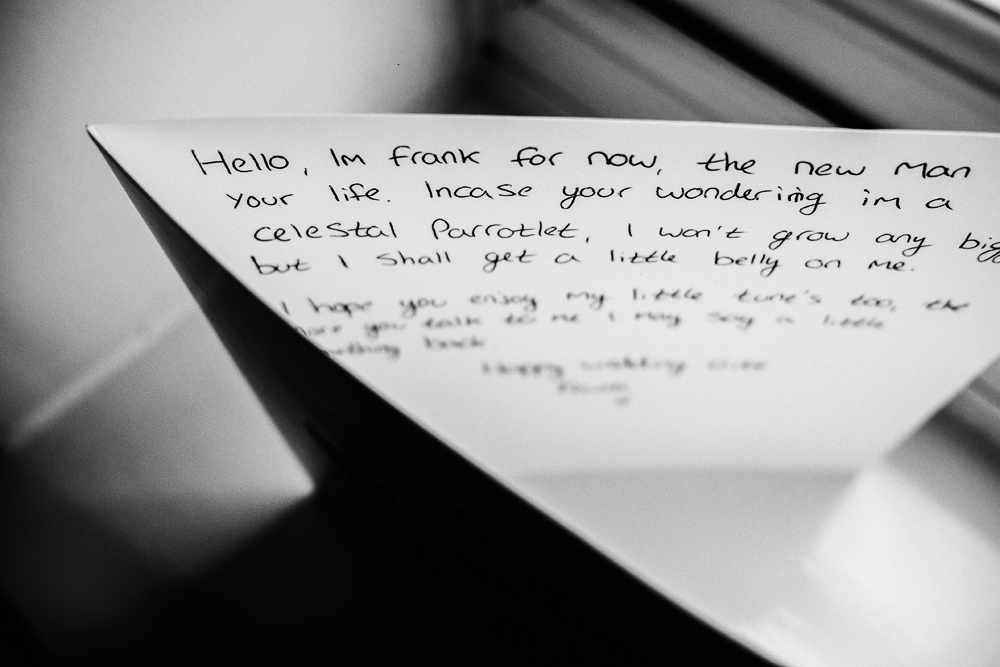 Hello, Im frank for now, the new Man
your life. Incase your wondering im a
celestal Parrotlet, I won't grow any big
but I shall get a little belly on me.
I hope you enjoy my little tune's too, the
you talk to me I may say a little
back
Happy wedding